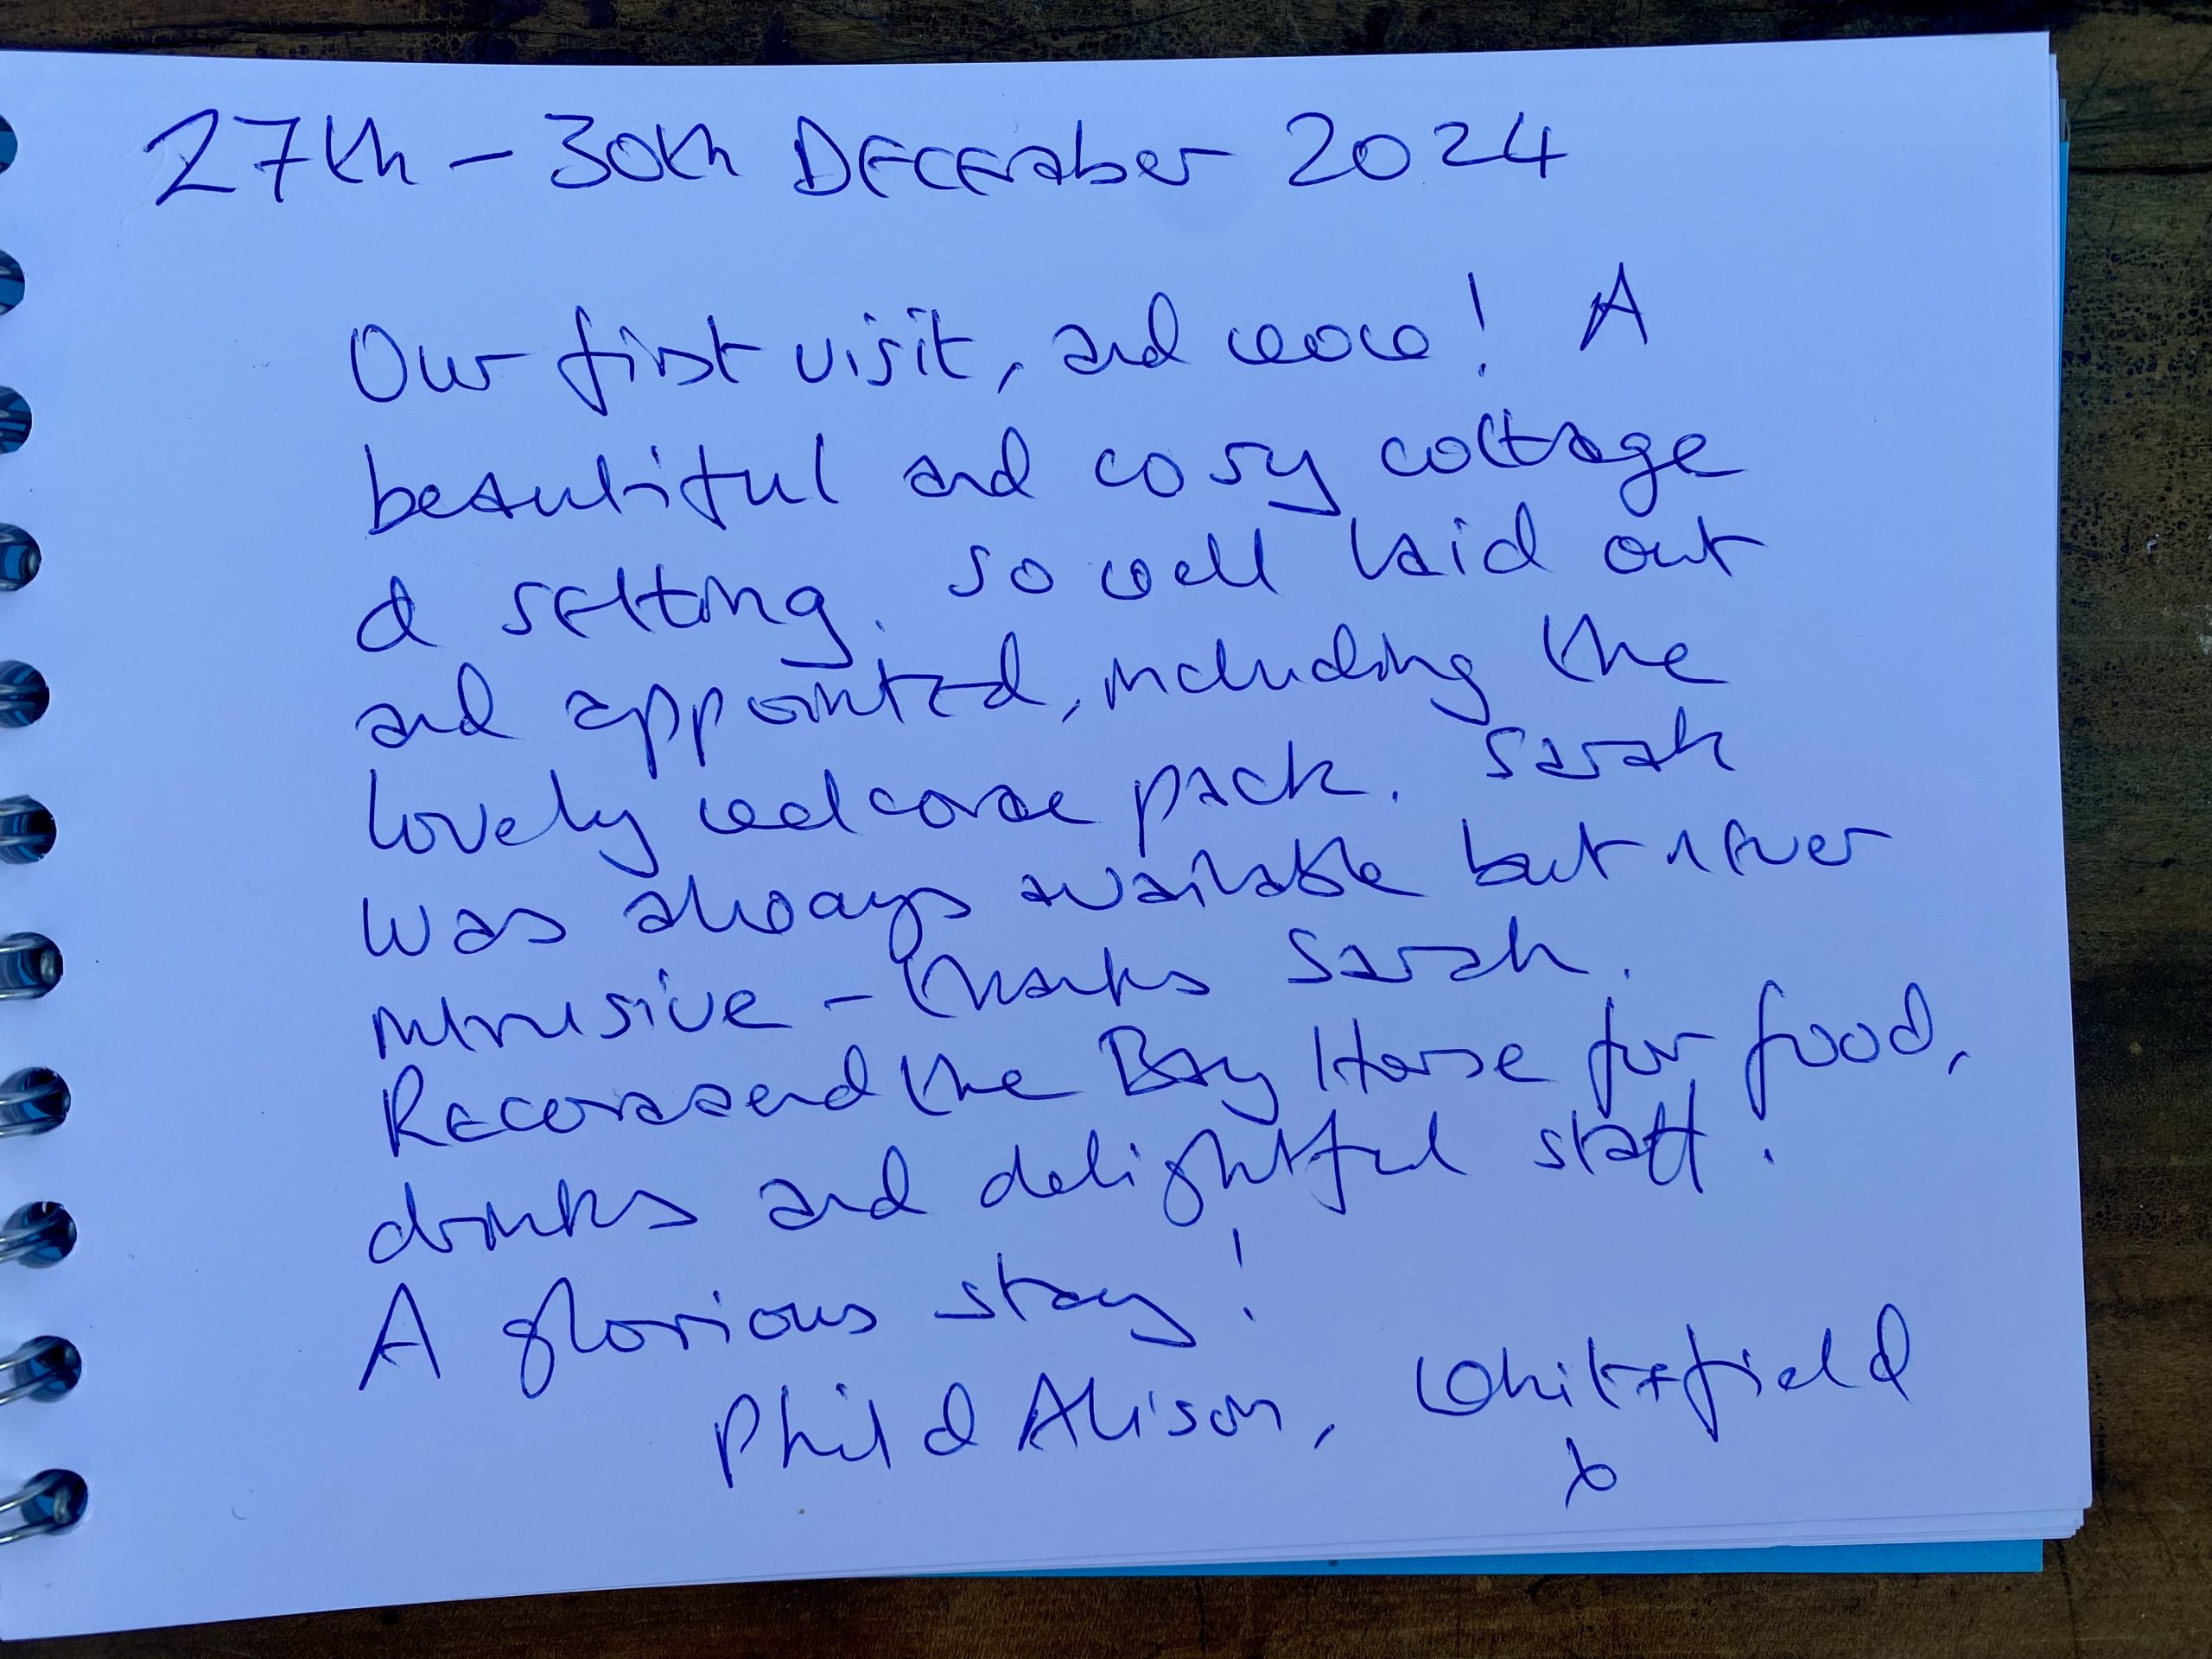 27th - 30th December 2024
Our first visit, and wow! A
beautiful and cosy cottage
& setting. So well laid out
and appointed, including the
lovely welcome pack. Sarah
was always available but never
intrusive - thanks Sarah.
Recommend the Bay Horse for food,
drinks and delightful staff.
A glorious stay!
Phil & Alison, Whitefield
x